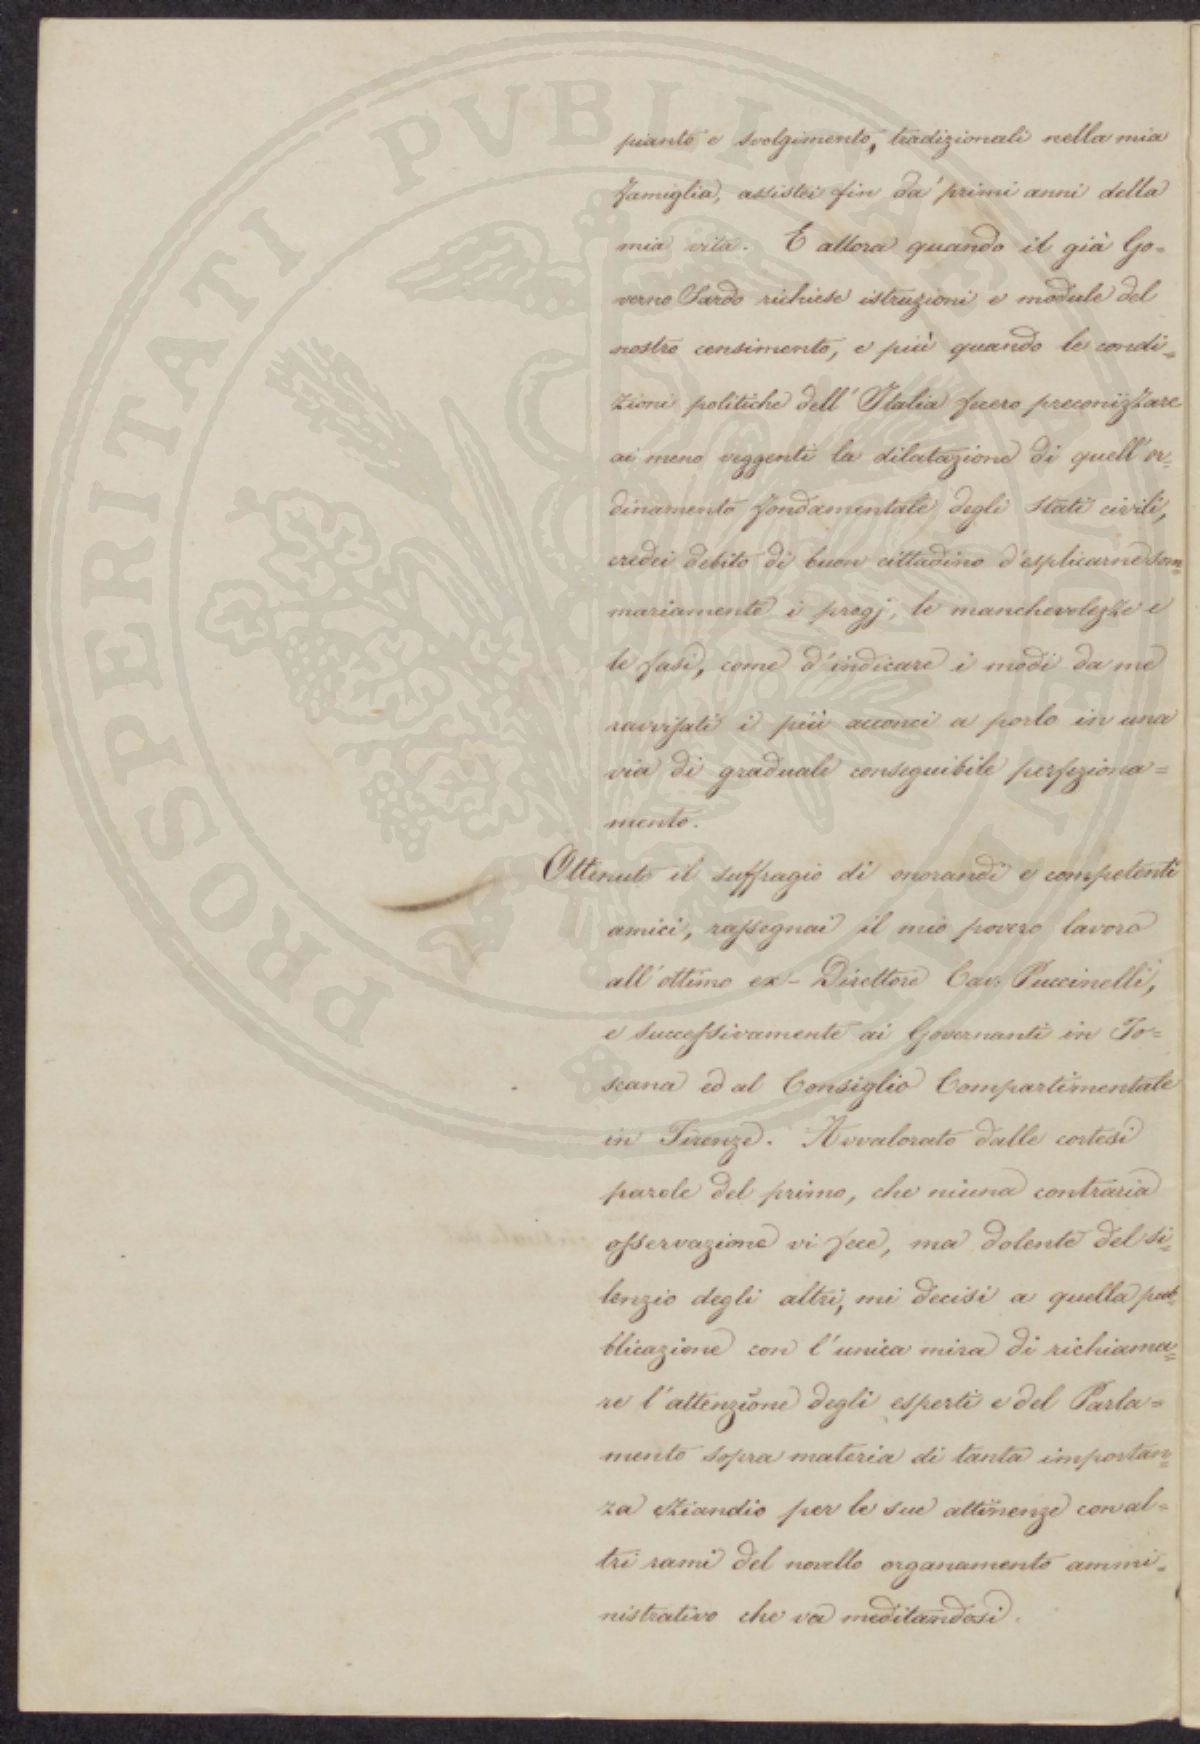 PROSPERITATI PVBLICAE
pianto e svolgimento, tradizionali nella mia
famiglia, assistei fin da' primi anni della
mia vita. E allora quando il già Go=
verno Sardo richiese istruzioni e module del
nostro censimento, e più quando le condi=
zioni politiche dell'Italia fecero preconizzare
ai meno veggenti la dilatazione di quell'or=
dinamento fondamentale degli Stati civili,
credei debito di buon cittadino d'esplicarne som=
mariamente i pregj, le manchevolezze e
le fasi, come d'indicare i modi da me
ravvisati i più acconci a porlo in una
via di graduale conseguibile perfeziona=
mento.
Ottenuto il suffragio di onorandi e competenti
amici, rassegnai il mio povero lavoro
all'ottimo ex-Direttore Cav. Puccinelli,
e successivamente ai Governanti in To=
scana ed al Consiglio Compartimentale
in Firenze. Avvalorato dalle cortesi
parole del primo, che niuna contraria
osservazione vi fece, ma dolente del si=
lenzio degli altri, mi decisi a quella pub=
blicazione con l'unica mira di richiama=
re l'attenzione degli esperti e del Parla=
mento sopra materia di tanta importan=
za eziandio per le sue attinenze con al=
tri rami del novello organamento ammi=
nistrativo che va meditandosi.